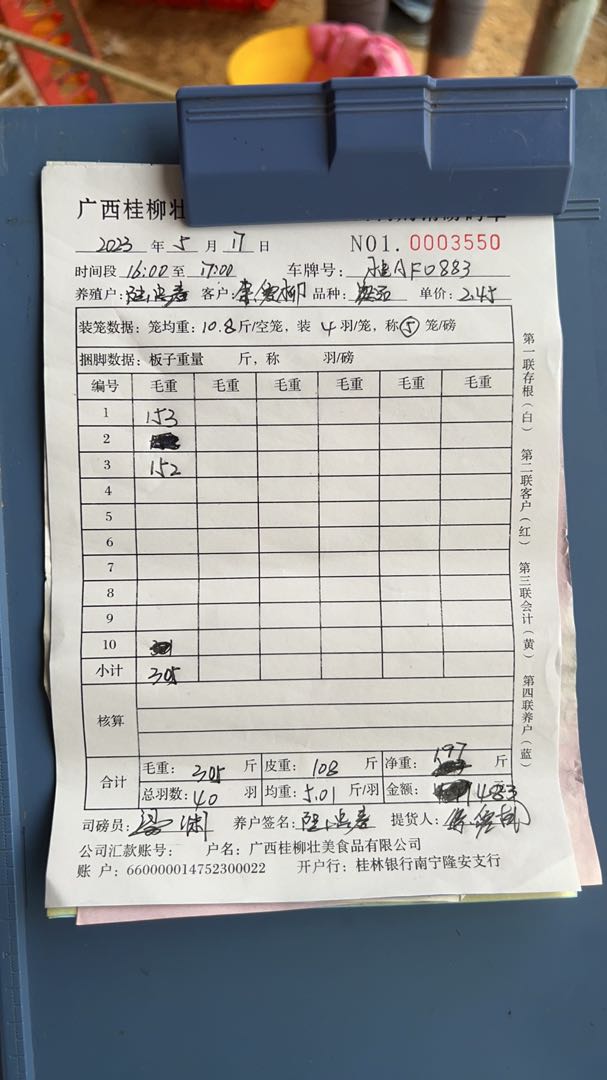 广西桂柳壮
2023 年 5 月 17 日 NO1. 0003550
时间段 16:00 至 17:00 车牌号: 桂AF0883
养殖户: 客户: 品种: 单价: 2.45
装笼数据: 笼均重: 10.8 斤/空笼, 装 4 羽/笼, 称 5 笼/磅
捆脚数据: 板子重量 斤, 称 羽/磅
编号 毛重 毛重 毛重 毛重 毛重 毛重
1 153
2
3 152
4
5
6
7
8
9
10
小计 305
核算
合计 毛重: 305 斤 皮重: 108 斤 净重: 197 斤
总羽数: 40 羽 均重: 5.01 斤/羽 金额: 483 元
司磅员: 养户签名: 提货人:
公司汇款账号: 户名: 广西桂柳壮美食品有限公司
账 户: 660000014752300022 开户行: 桂林银行南宁隆安支行
第一联存根(白) 第二联客户(红) 第三联会计(黄) 第四联养户(蓝)